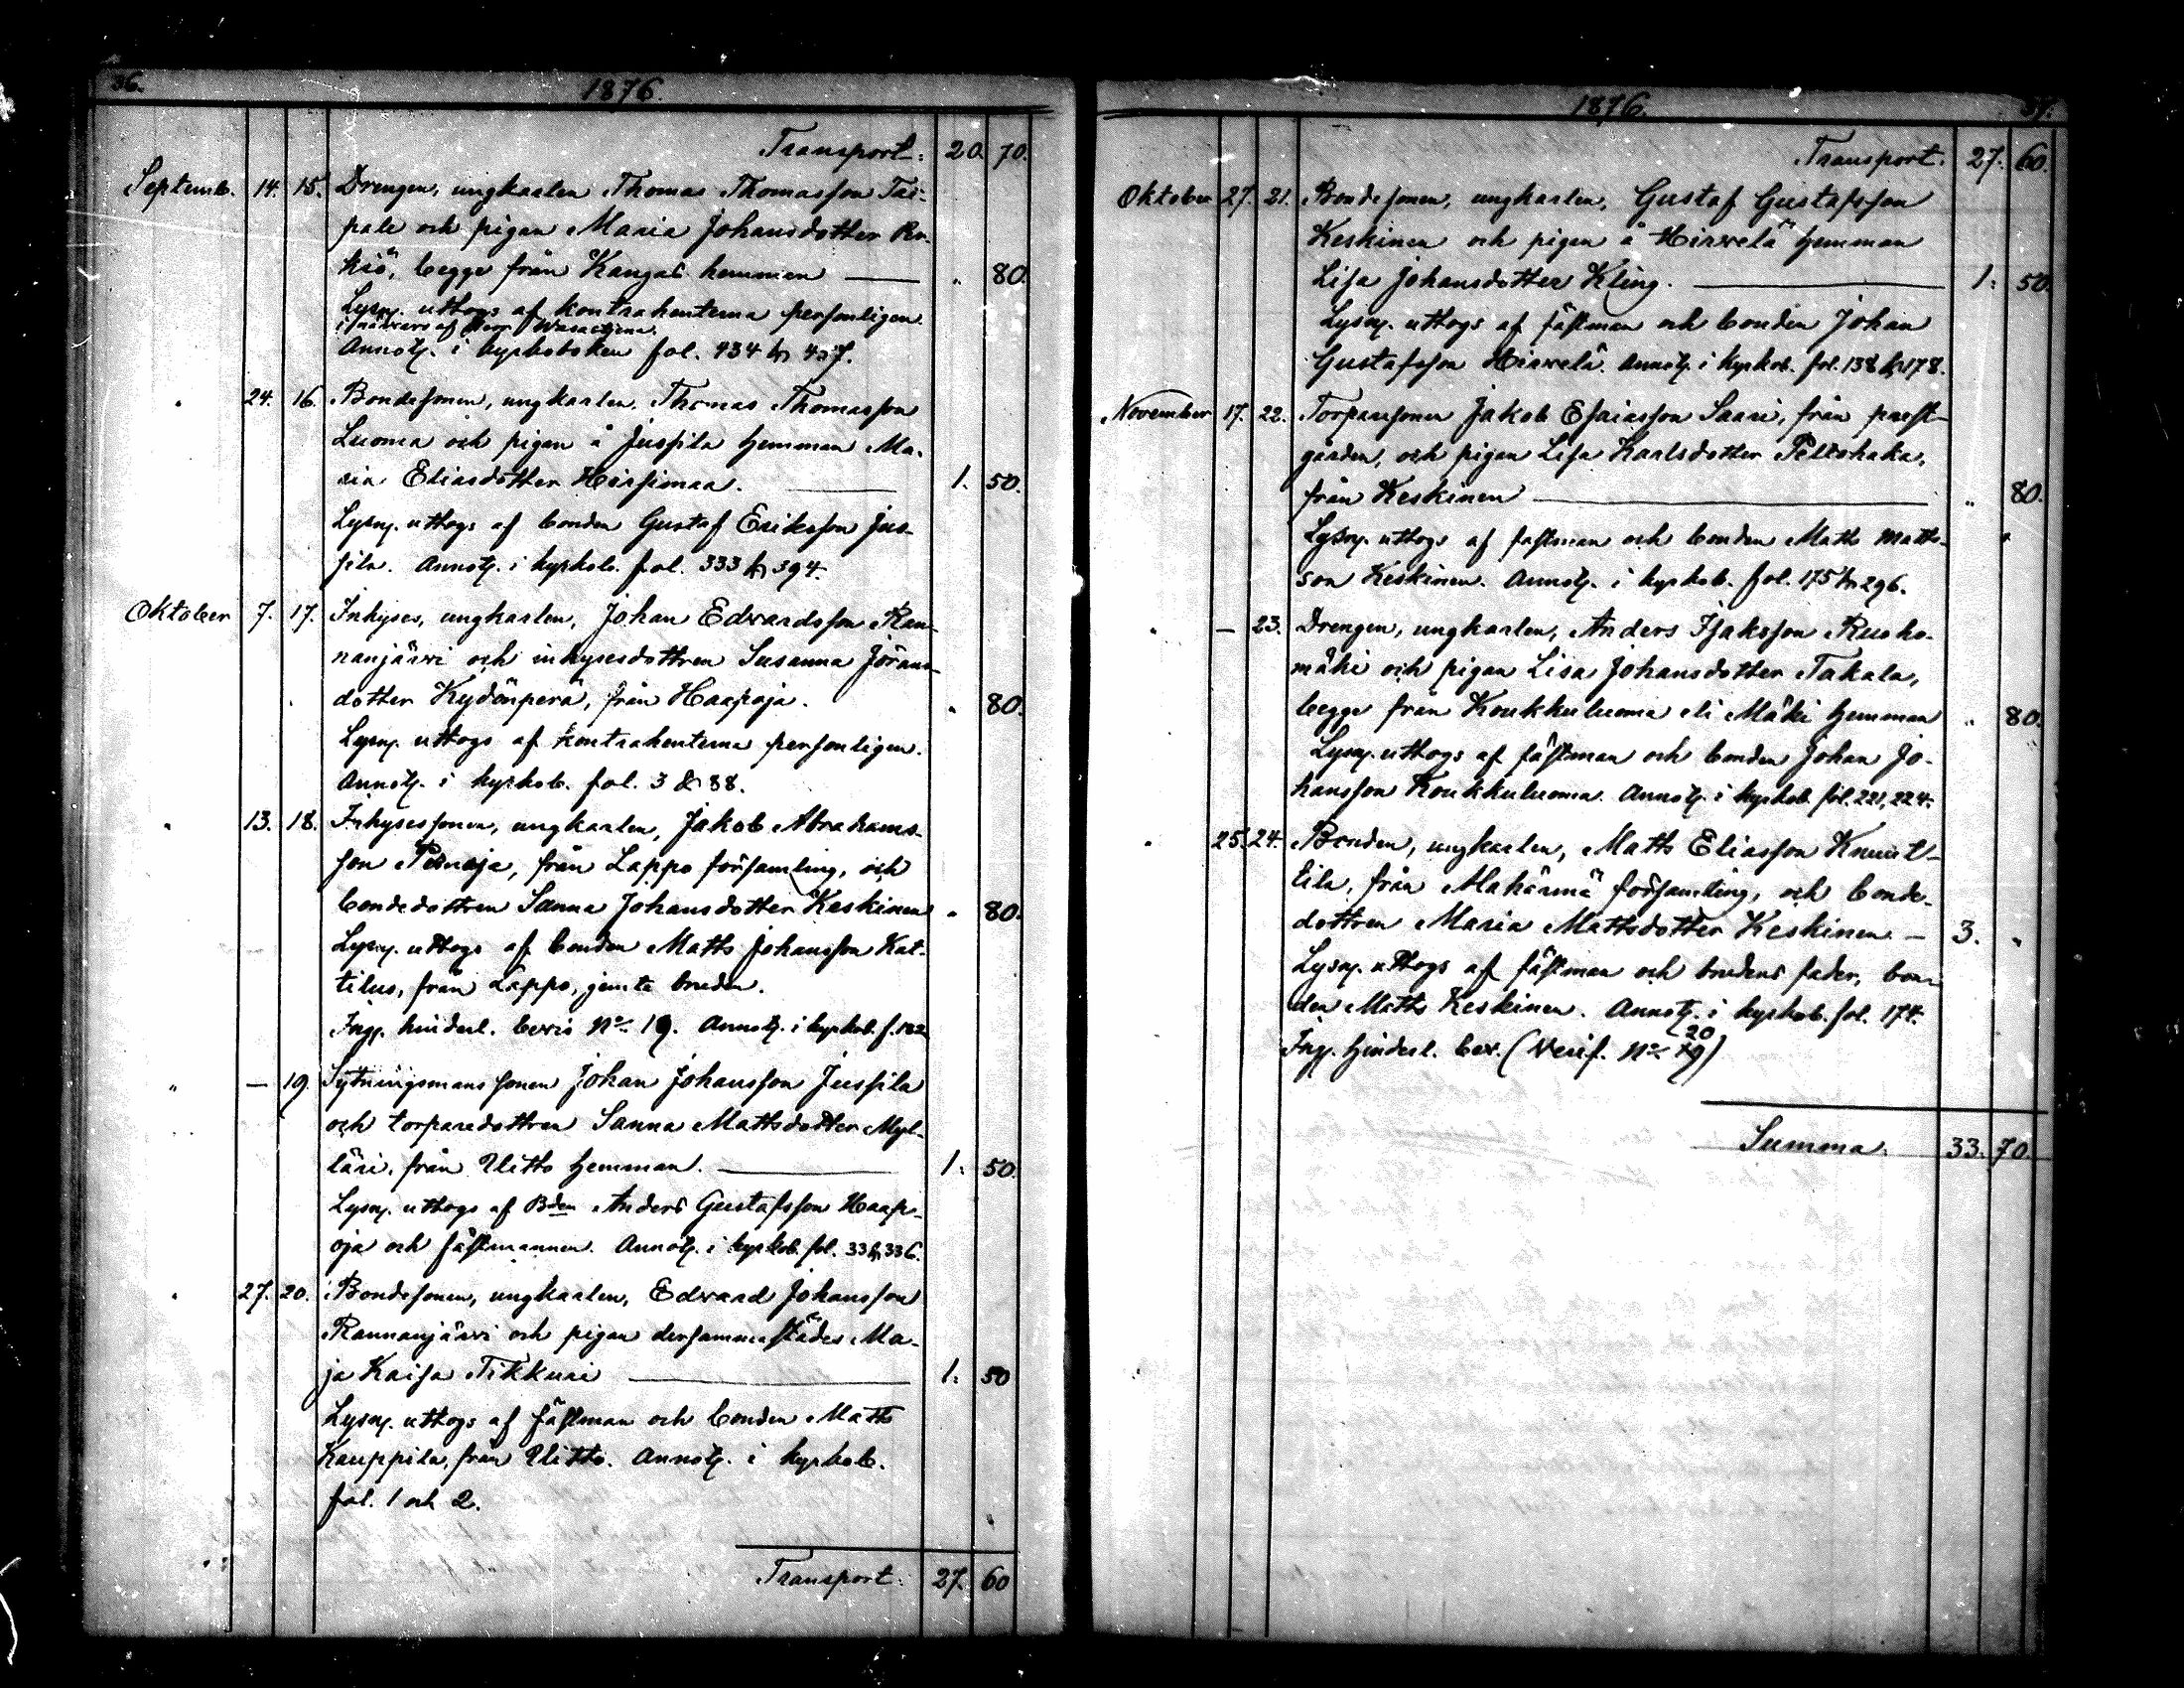 36.
1876.
Transport: 20. 70.
Septemb. 14. 15. Drengen, ungkarlen Thomas Thomasson Tai-
pale och pigan Maria Johansdotter
kiö, begge från Kangas hemman — " 80.
Lysn. uttogs af kontrahenterna personligen
i närvaro af
Annotg. i kyrkoboken fol. 434 &
" 24. 16. Bondesonen, ungkarlen, Thomas Thomasson
Luoma och pigan å Jussila hemman Ma-
ria Eliasdotter Hirsimaa. — 1. 50.
Lysn. uttogs af bonden Gustaf Eriksson Jus-
sila. Annotg. i kyrkob. fol. 333 & 394.
Oktober 7. 17. Inhyses, ungkarlen, Johan Edvardsson Ran-
nanjärvi och inhysesdottren Susanna Jörans-
dotter Kydönperä, från Haapoja. " 80.
Lysn. uttogs af kontrahenterna personligen.
Annotg. i kyrkob. fol. 3 & 38.
" 13. 18. Inhysessonen, ungkarlen, Jakob Abrahams-
son Pernaja, från Lappo församling, och
bondedottren Sanna Johansdotter Keskinen " 80.
Lysn. uttogs af bonden Matts Johansson Kat-
tilus, från Lappo, jemte bruden.
Ingp. hinderl. bevis No 19. Annotg. i kyrkob. f. 182
" — 19 Sytningsmans sonen Johan Johansson Jussila
och torparedottren Sanna Mattsdotter Myl-
läri, från Ulitto hemman. — 1. 50.
Lysn. uttogs af Bden Anders Gustafsson Haap-
oja och fästmannen. Annotg. i kyrkob. fol. 33 & 336.
" 27. 20. Bondesonen, ungkarlen, Edvard Johansson
Rannanjärvi och pigan dersammastädes Ma-
ja Kaisa Tikkuri — 1. 50
Lysn. uttogs af fästman och bonden Matts
Kauppila, från Ulitto. Annotg. i kyrkob.
fol. 1 och 2.
Transport: 27. 60
1876.
37.
Transport. 27. 60.
Oktober 27. 21. Bondesonen, ungkarlen, Gustaf Gustafsson
Keskinen och pigan å Hirvelä hemman
Lisa Johansdotter Kling. — 1. 50.
Lysn. uttogs af fästman och bonden Johan
Gustafsson Hirvelä. Annotg. i kyrkob. fol. 138 & 178.
November 17. 22. Torparesonen Jakob Esaiasson Saari, från prest-
gården, och pigan Lisa Karlsdotter Peltohaka,
från Keskinen — " 80.
Lysn. uttogs af fastman och bonden Matts Matts-
son Keskinen. Annotg. i kyrkob. fol. 175 & 296.
" — 23. Drengen, ungkarlen, Anders Isaksson Ruoho-
mäki och pigan Lisa Johansdotter Takala,
begge från Koukkuluoma Mäki hemman " 80.
Lysn. uttogs af fästman och bonden Johan Jo-
hansson Koukkuluoma. Annotg. i kyrkob. fol. 221, 224.
" 25. 24. Bonden, ungkarlen, Matts Eliasson Knuut-
tila, från Alahärmä församling, och bonde-
dottren Maria Mattsdotter Keskinen. — 3. "
Lysn. uttogs af fästman och brudens fader, bon-
den Matts Keskinen. Annotg. i kyrkob. fol. 174.
20
Ingp. hinderl. bev. (Verif. No 19)
Summa. 33. 70.